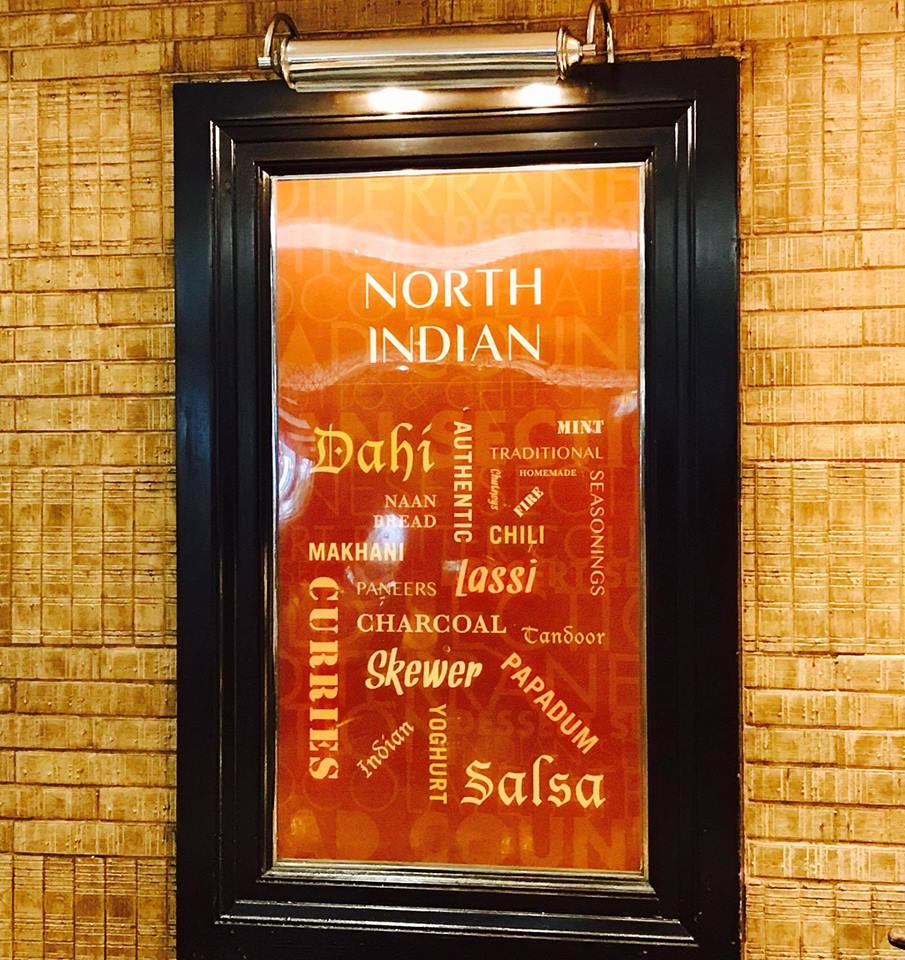 NORTH
INDIAN
Dahi
AUTHENTIC
MINT
TRADITIONAL
HOMEMADE
Chutneys
FIRE
SEASONINGS
NAAN
BREAD
CHILI
MAKHANI
PANEERS
Lassi
CURRIES
CHARCOAL
Tandoor
Skewer
PAPADUM
Indian
YOGHURT
Salsa